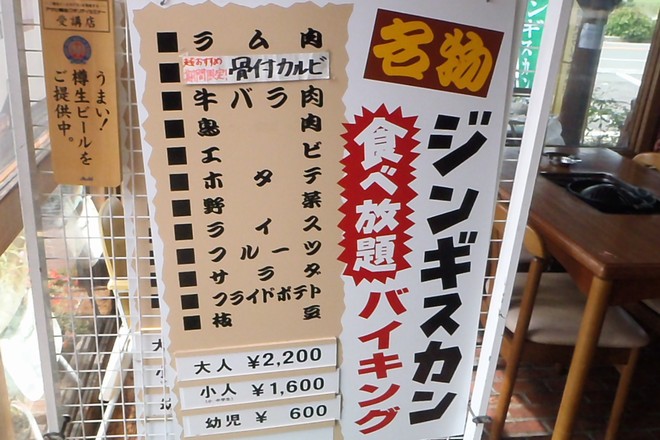 名物
ジンギスカン
食べ放題
バイキング
ラム肉
期間限定
骨付カルビ
牛バラ肉
鳥肉
エビ
ホタテ
野菜
ライス
フルーツ
サラダ
フライドポテト
枝豆
大人 ¥2,200
小人 ¥1,600
幼児 ¥ 600
受講店
うまい!
樽生ビールを
ご提供中。
大
小
ンギスカン